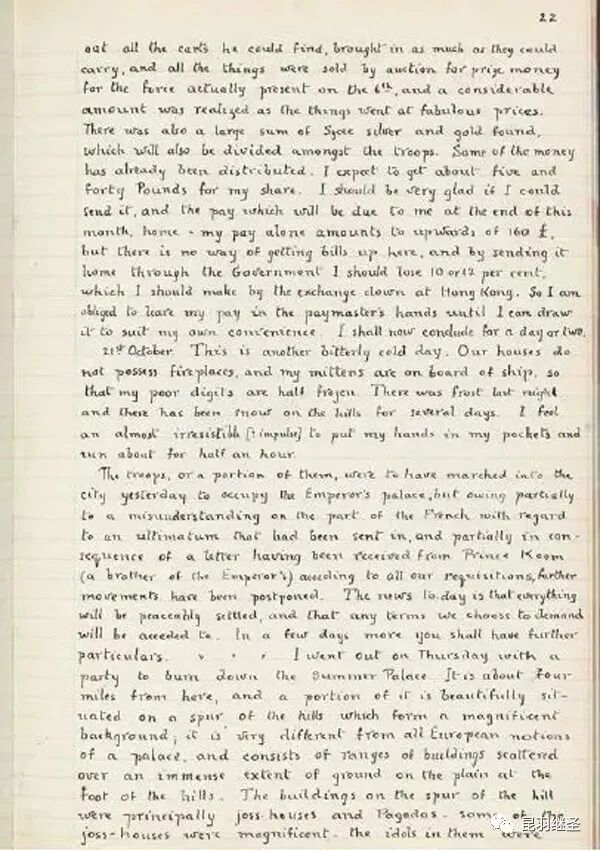 22
out all the carts he could find, brought in as much as they could
carry, and all the things were sold by auction for prize money
for the force actually present on the 6th, and a considerable
amount was realized as the things went at fabulous prices.
There was also a large sum of Sycee silver and gold found,
which will also be divided amongst the troops. Some of the money
has already been distributed. I expect to get about five and
forty Pounds for my share. I should be very glad if I could
send it, and the pay which will be due to me at the end of this
month, home - my pay alone amounts to upwards of 160 £,
but there is no way of getting bills up here, and by sending it
home through the Government I should lose 10 or 12 per cent,
which I should make by the exchange down at Hong Kong. So I am
obliged to leave my pay in the paymaster's hands until I can draw
it to suit my own convenience. I shall now conclude for a day or two.
21st October This is another bitterly cold day. Our houses do
not possess fireplaces, and my mittens are on board of ship, so
that my poor digits are half frozen. There was frost last night
and there has been snow on the hills for several days. I feel
an almost irresistible [? impulse] to put my hands in my pockets and
run about for half an hour.
The troops, or a portion of them, were to have marched into the
city yesterday to occupy the Emperor's palace, but owing partially
to a misunderstanding on the part of the French with regard
to an ultimatum that had been sent in, and partially in con-
sequence of a letter having been received from Prince Koom
(a brother of the Emperor's) acceding to all our requisitions, further
movements have been postponed. The news to.day is that everything
will be peaceably settled, and that any terms we choose to demand
will be acceded to. In a few days more you shall have further
particulars. I went out on Thursday with a
party to burn down the Summer Palace. It is about four
miles from here, and a portion of it is beautifully sit-
uated on a spur of the hills which form a magnificent
background; it is very different from all European notions
of a palace, and consists of ranges of buildings scattered
over an immense extent of ground on the plain at the
foot of the hills. The buildings on the spur of the hill
were principally joss-houses and Pagodas - some of the
joss-houses were magnificent - the idols in them were
昆羽继圣